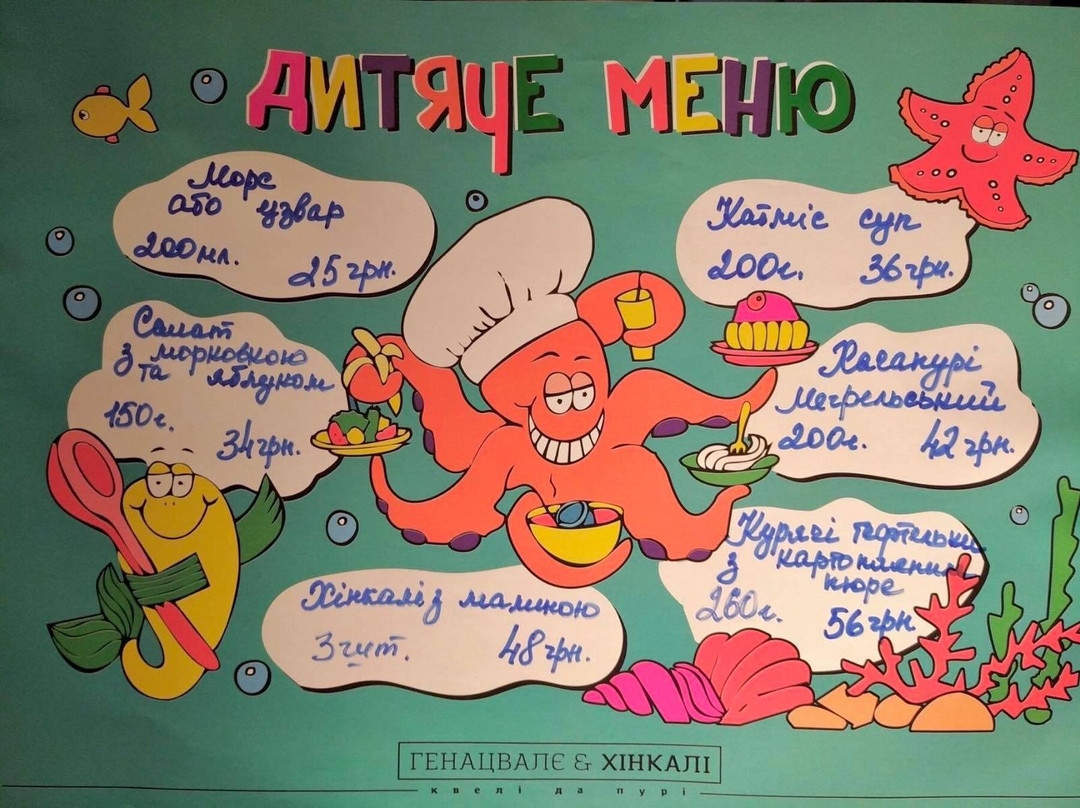 ДИТЯЧЕ МЕНЮ
Морс
або узвар
200мл.
25грн.
Салат
з морковкою
та яблуком
150г.
34грн.
Хінкалі з малиною
3 шт.
48грн.
суп
200г.
36грн.
Хачапурі
мегрельський
200г.
42грн.
Курячі тефтельки
з картопляним
пюре
260г.
56грн
ГЕНАЦВАЛЄ & ХІНКАЛІ
квелі да пурі